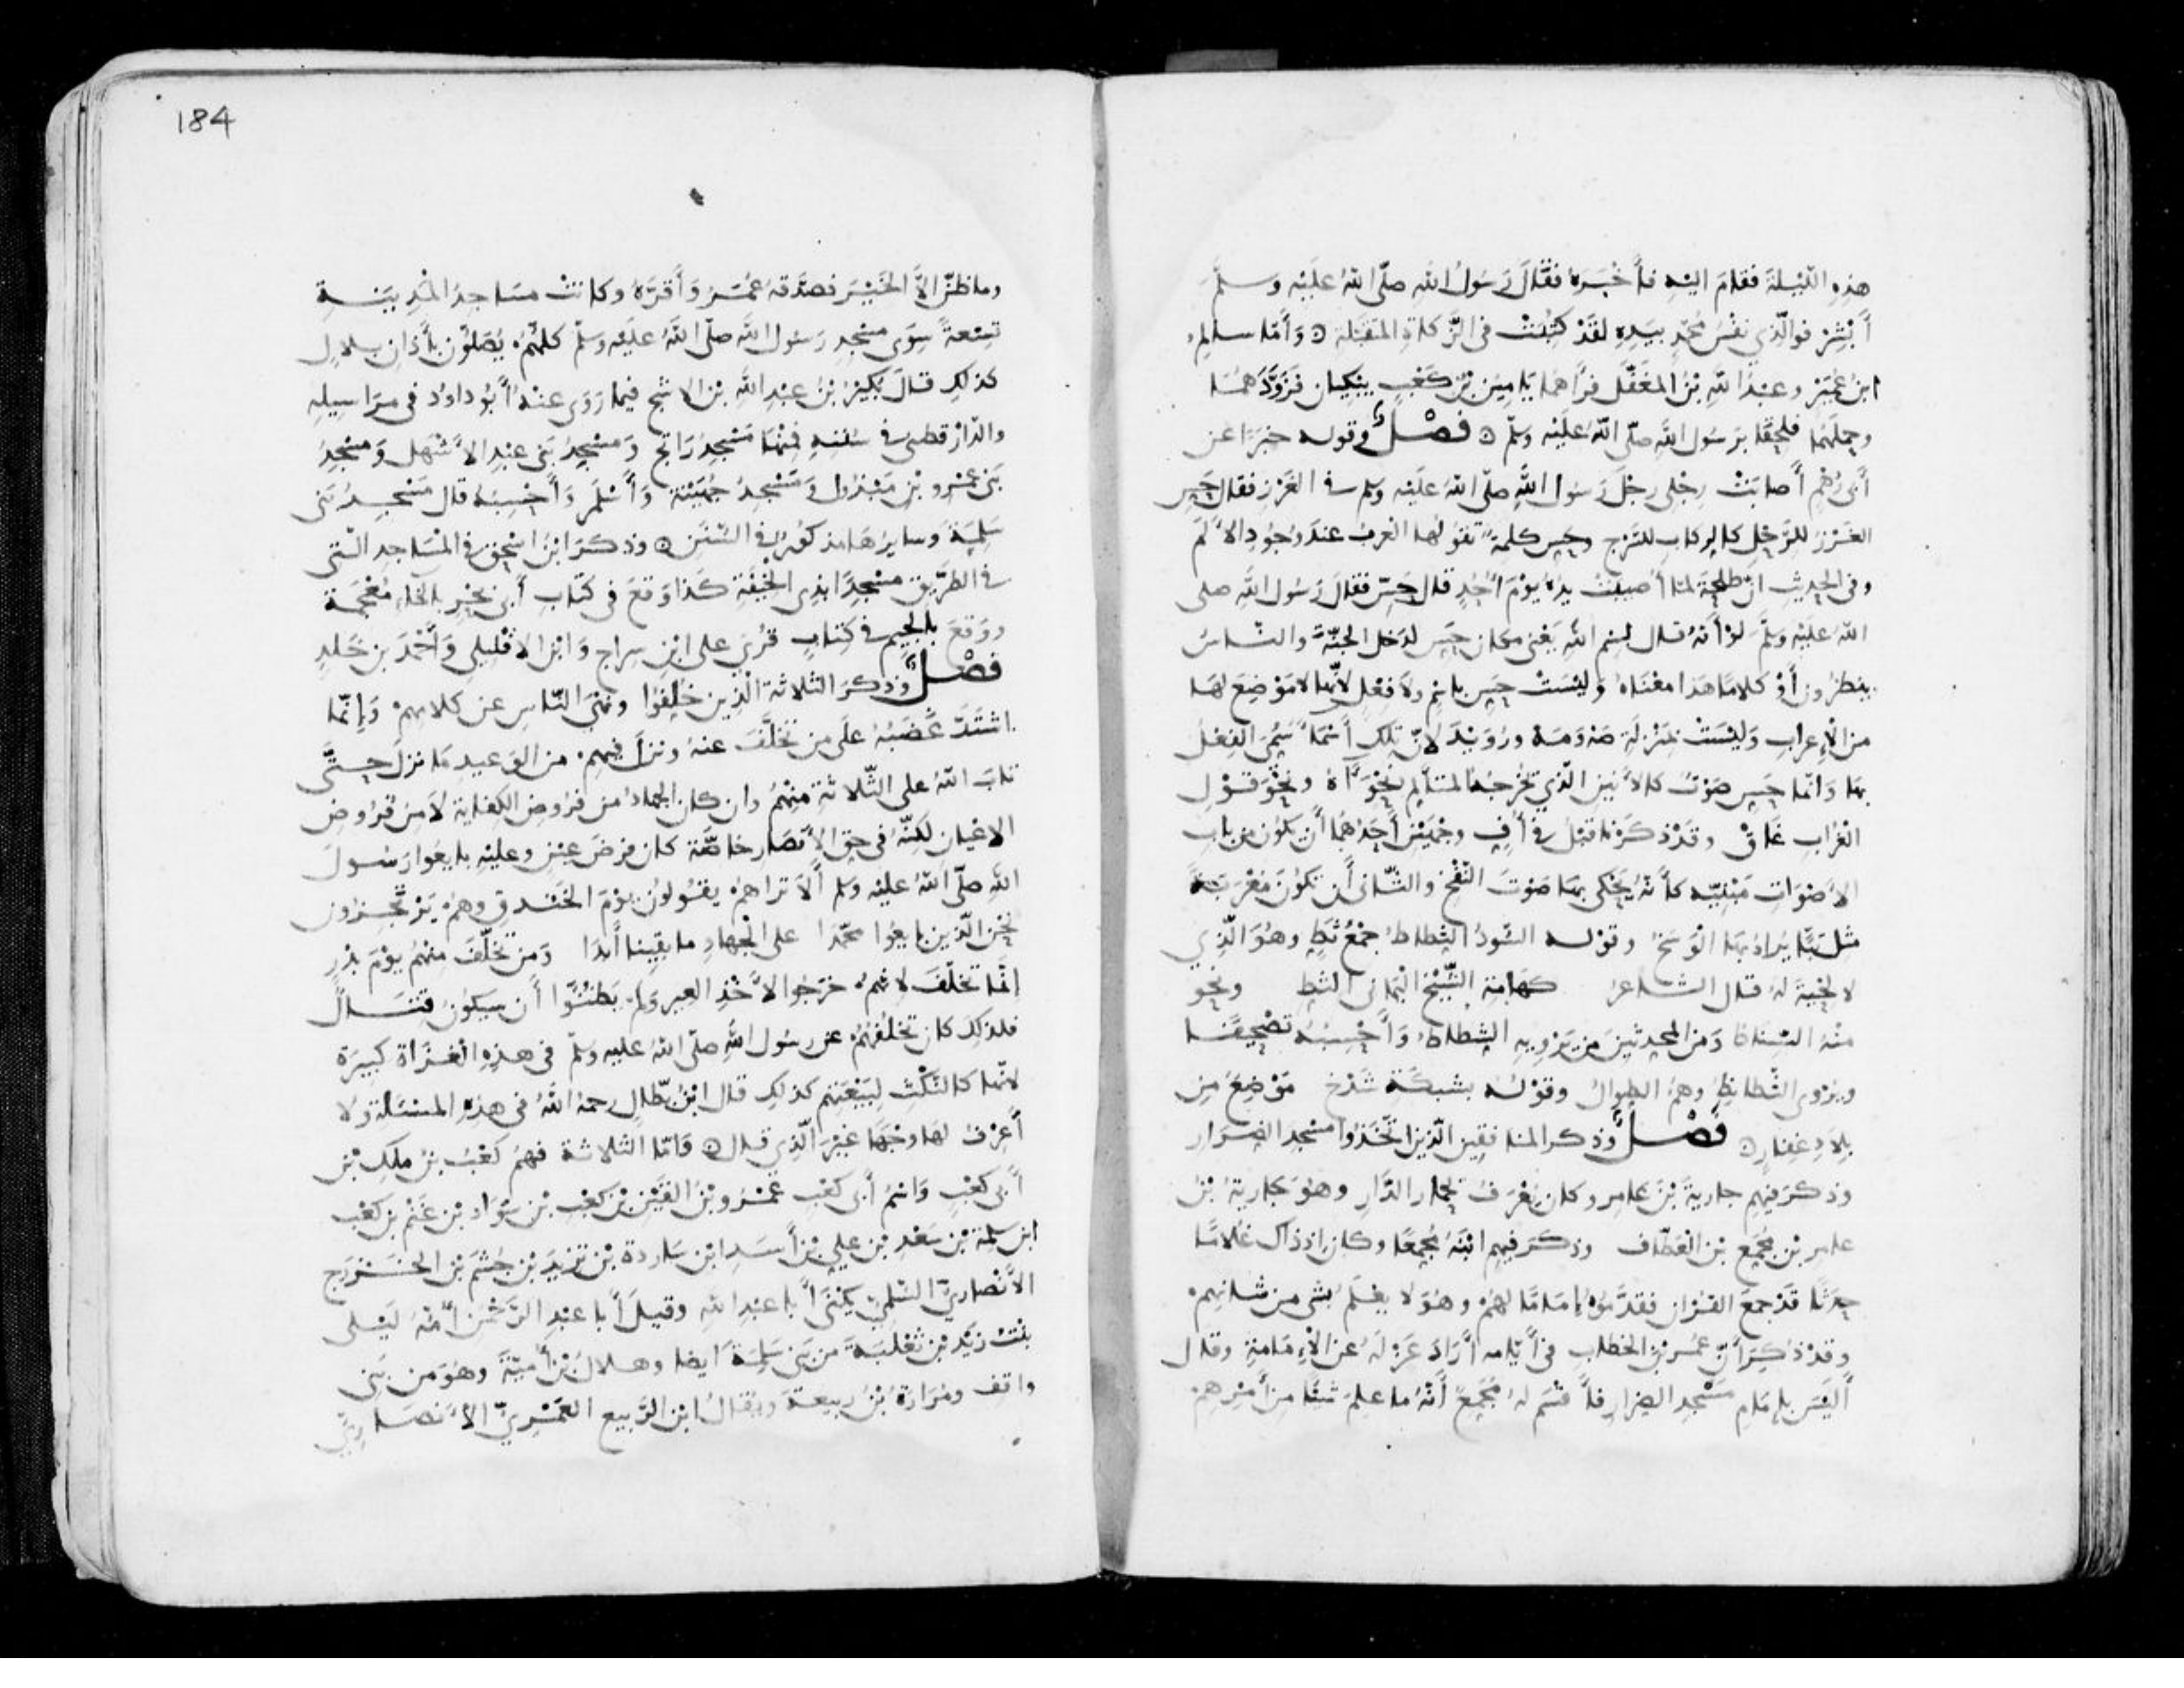 هذه الليلة فقام اليه فأخبره فقال رسول الله صلى الله عليه وسلم
أبشر فوالذي نفس محمد بيده لقد كتبت في الزكاة المتقبلة وأما سالم
ابن عمير وعبد الله بن المغفل فرآهما يامين بن كعب يبكيان فزودهما
وحملهما فلحقا برسول الله صلى الله عليه وسلم فصل وقوله خبرا عن
أبي رهم أصابت رجلي رجل رسول الله صلى الله عليه وسلم في الغرز فقال حس
الغرز للرحل كالركاب للسرج وحس كلمة تقولها العرب عند وجود الألم
وفي الحديث ان طلحة لما أصيبت يده يوم أحد قال حس فقال رسول الله صلى
الله عليه وسلم لو أنه قال بسم الله يعني مكان حس لدخل الجنة والناس
ينظرون أو كلاما هذا معناه وليست حس باسم ولا فعل لأنها لا موضع لها
من الإعراب وليست بمنزلة صه ومه ورويد لأن تلك أسماء سمي الفعل
بها وانما حس صوت كالأنين الذي يخرجه المتألم نحو آه ونحو قول
الغراب غاق وقد ذكرنا قبل في أف وجهين أحدهما أن يكون من باب
الأصوات مبنية كأنه يحكي بها صوت النفخ والثاني أن تكون معربة
مثل تبا يراد بها الوسخ وقوله السود الثطاط جمع ثط وهو الذي
لا لحية له قال الشاعر كهامة الشيخ اليماني الثط ونحو
منه السناط ومن المحدثين من يرويه الشطاط وأحسبه تصحيفا
ويروى الشطاط وهم الطوال وقوله بشبكة شدخ موضع من
بلاد غفار فصل وذكر المنافقين الذين اتخذوا مسجد الضرار
وذكر فيهم جارية بن عامر وكان يعرف بحمار الدار وهو جارية بن
عامر بن مجمع بن العطاف وذكر فيهم ابنه مجمعا وكان إذ ذاك غلاما
حدثا قد جمع القران فقدموه إماما لهم وهو لا يعلم بشي من شانهم
وقد ذكر أن عمر بن الخطاب في أيامه أراد عزله عن الإمامة وقال
أليس بإمام مسجد الضرار فأقسم له مجمع أنه ما علم شيئا من أمرهم
184
وما ظن الا الخير فصدقه عمر وأقره وكانت مساجد المدينة
تسعة سوى مسجد رسول الله صلى الله عليه وسلم كلهم يصلون بأذان بلال
كذلك قال بكير بن عبد الله بن الاشج فيما روى عنه أبو داود في مراسيله
والدارقطني في سننه فمنها مسجد راتج ومسجد بني عبد الأشهل ومسجد
بني عمرو بن مبذول ومسجد جهينة وأسلم وأحسبه قال مسجد بني
سلمة وسايرها مذكور في السنن وذكر ابن اسحق في المساجد التي
في الطريق مسجدا بذي الخيفة كذا وقع في كتاب أبي بحر بالخاء معجمة
ووقع بالجيم في كتاب قرئ على ابن سراج وابن الافليلي وأحمد بن خلد
فصل وذكر الثلاثة الذين خلفوا ونهي الناس عن كلامهم وإنما
اشتد غضبه على من تخلف عنه ونزل فيهم من الوعيد ما نزل حتى
تاب الله على الثلاثة منهم وان كان الجهاد من فروض الكفاية لا من فروض
الاعيان لكنه في حق الأنصار خاصة كان فرض عين وعليه بايعوا رسول
الله صلى الله عليه وسلم ألا تراهم يقولون يوم الخندق وهم يرتجزون
نحن الذين بايعوا محمدا على الجهاد ما بقينا أبدا ومن تخلف منهم يوم بدر
انما تخلف لانهم خرجوا لأخذ العير ولم يظنوا أن سيكون قتال
فلذلك كان تخلفهم عن رسول الله صلى الله عليه وسلم في هذه الغزاة كبيرة
لانها كالنكث لبيعتهم كذلك قال ابن بطال رحمه الله في هذه المسئلة ولا
أعرف لها وجها غير الذي قال واما الثلاثة فهم كعب بن ملك بن
أبي كعب واسم أبي كعب عمرو بن القين بن كعب بن سواد بن غنم بن كعب
ابن سلمة بن سعد بن علي بن أسد ابن ساردة بن تزيد بن جشم بن الخزرج
الأنصاري السلمي يكنى أبا عبد الله وقيل أبا عبد الرحمن أمه ليلى
بنت زيد بن ثعلبة من بني سلمة ايضا وهلال بن أمية وهو من بني
واقف ومرارة بن ربيعة ويقال ابن الربيع العمري الأنصاري